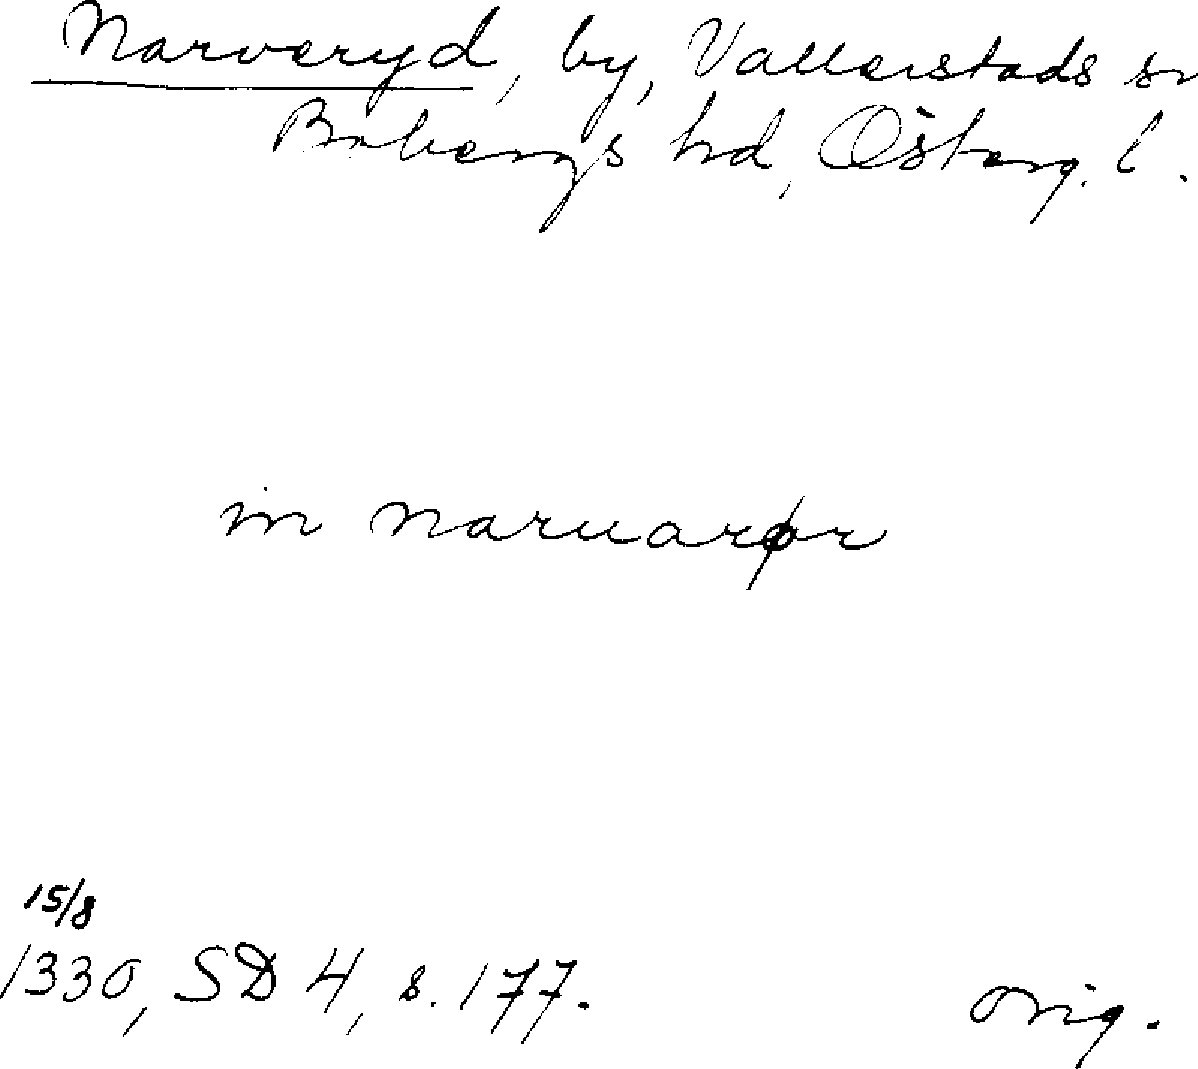 Narveryd, by, Vallerstads sn
Bobergs hd, Österg. l.
in naruarør
15/8
1330, SD 4, s. 177.
orig.